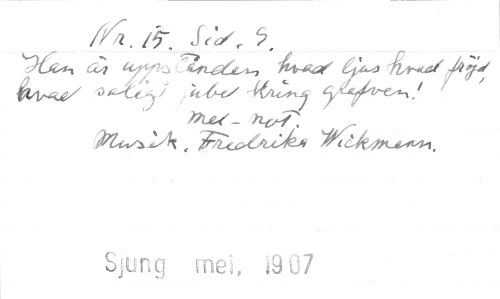 Nr. 15. Sid. 9.
Han är uppstånden, hvad ljus hvad fröjd,
hvad saligt jubel kring grafven!
mel-not.
Musik. Fredrika Wickmann.
Sjung mei, 1907